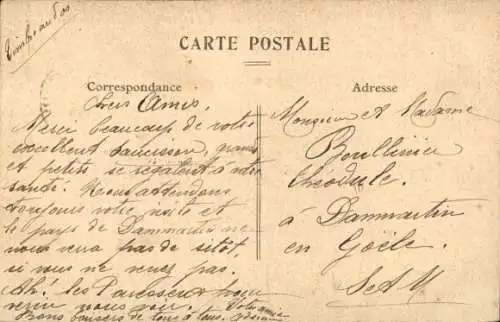 Timbre au dos
CARTE POSTALE
Correspondance
Adresse
Chers Amis.
Merci beaucoup de votre
excellent saucisson, grands
et petits se régalent à votre
santé. Nous attendons
toujours votre visite et
le pays de Dammartin ne
nous verra pas de sitôt,
si vous ne venez pas.
Ah! les Paresseux pour
venir nous voir. Votre amie
Bons baisers de tous à tous.
Monsieur et Madame
Boullinier
Théodule.
à Dammartin
en Goële.
S et M